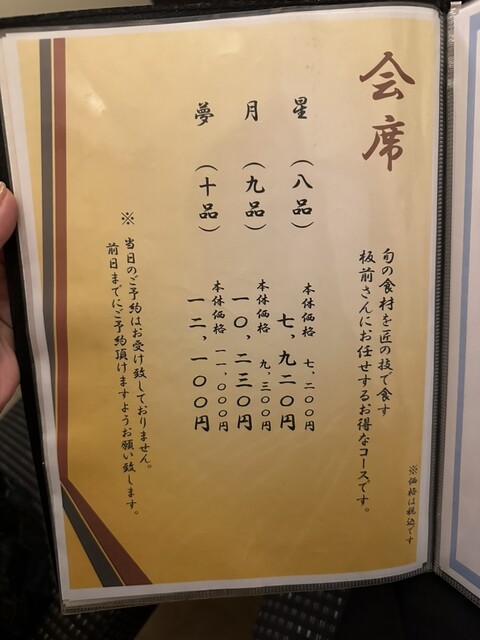 会席
旬の食材を匠の技で食す
板前さんにお任せするお得なコースです。
※価格は税込です
星（八品）
本体価格 七、二〇〇円
七、九二〇円
月（九品）
本体価格 九、三〇〇円
一〇、二三〇円
夢（十品）
本体価格 一一、〇〇〇円
一二、一〇〇円
※当日のご予約はお受け致しておりません。
前日までにご予約頂けますようお願い致します。